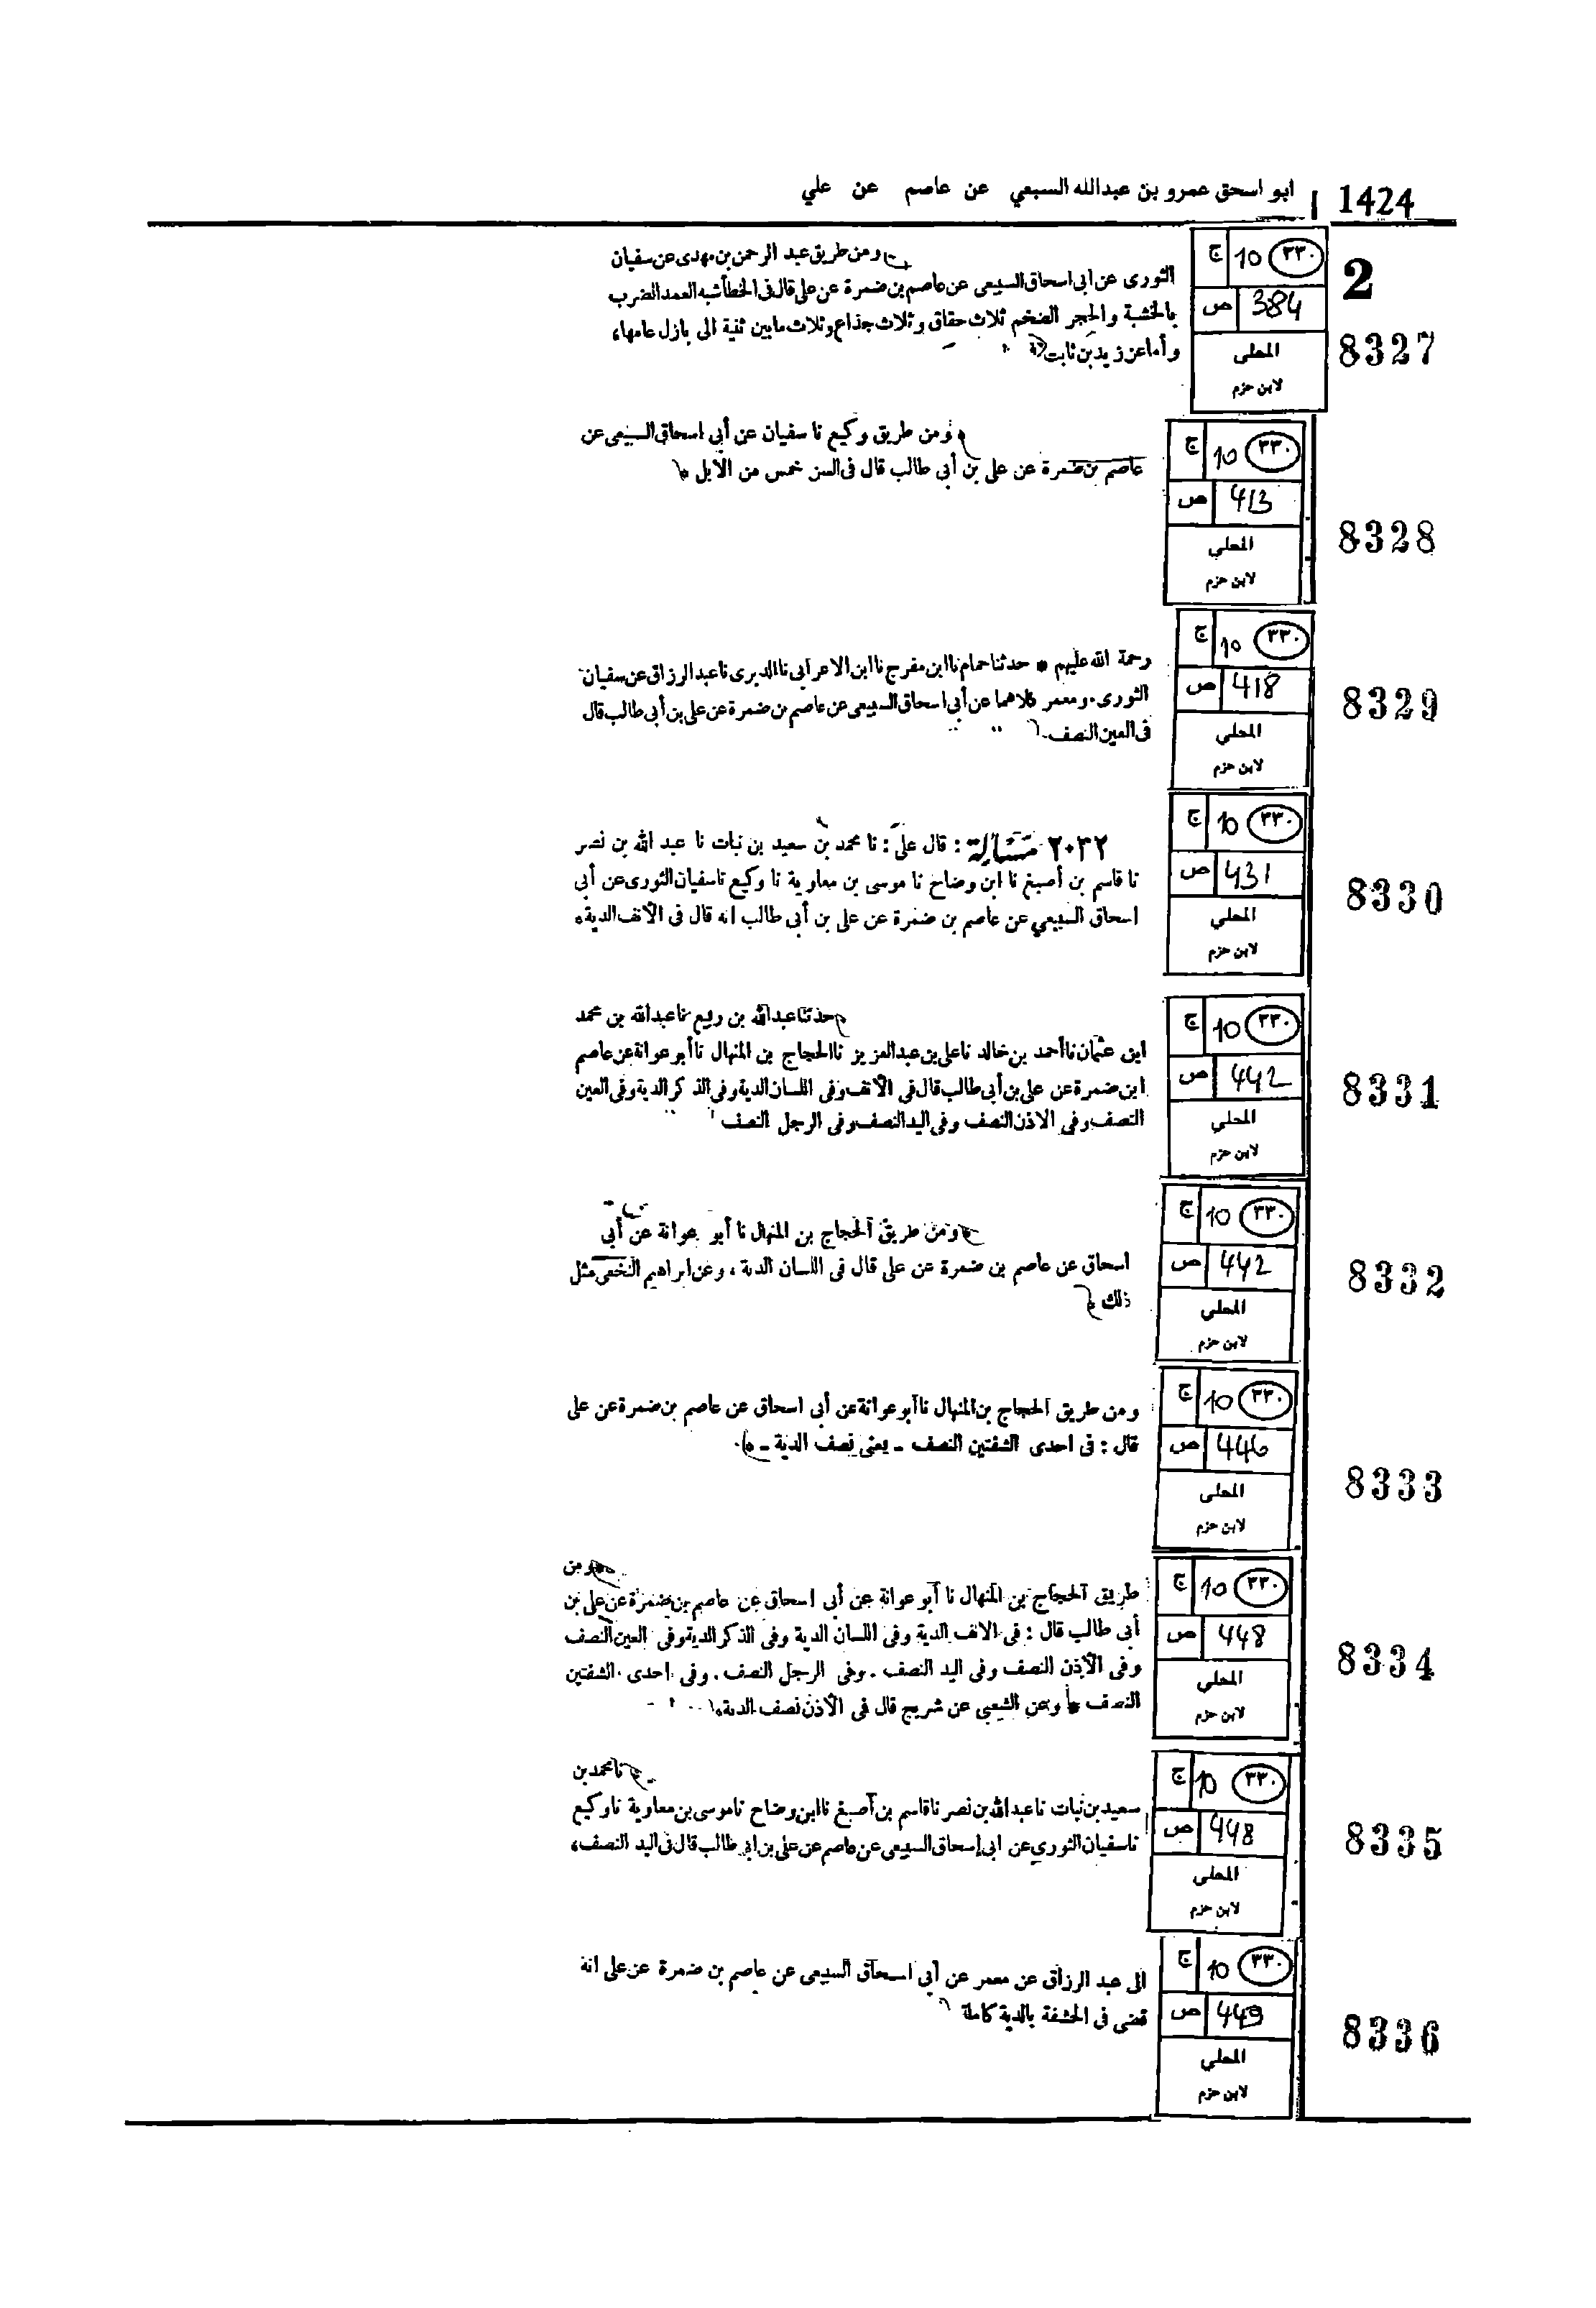 1424 ابو اسحق عمرو بن عبدالله السبعي عن عاصم عن علي
2
8327
ج 10 ٣٣٠
ص 384
المحلى
لابن حزم
ومن طريق عبد الرحمن بن مهدى عن سفيان
الثورى عن ابى اسحاق السبيعى عن عاصم بن ضمرة عن على قال فى الخطأ شبه العمد الضرب
بالخشبة والحجر الضخم ثلاث حقاق وثلاث جذاع وثلاث ما بين ثنية الى بازل عامها،
وأما عن زيد بن ثابت
8328
ج 10 ٣٣٠
ص 413
المحلي
لابن حزم
ومن طريق وكيع نا سفيان عن أبى اسحاق السبيعى عن
عاصم بن ضمرة عن على بن أبى طالب قال فى السن خمس من الابل *
8329
ج 10 ٣٣٠
ص 418
المحلي
لابن حزم
رحمة الله عليهم * حدثنا حمام نا ابن مفرج نا ابن الاعرابى نا الدبرى نا عبد الرزاق عن سفيان
الثورى. ومعمر كلاهما عن أبى اسحاق السبيعى عن عاصم بن ضمرة عن على بن أبى طالب قال
فى العين النصف
8330
ج 10 ٣٣٠
ص 431
المحلي
لابن حزم
٢٠٣٢ مسألة : قال على : نا محمد بن سعيد بن نبات نا عبد الله بن نصر
نا قاسم بن أصبغ نا ابن وضاح نا موسى بن معاوية نا وكيع نا سفيان الثورى عن أبى
اسحاق السبيعي عن عاصم بن ضمرة عن على بن أبى طالب انه قال فى الانف الدية*
8331
ج 10 ٣٣٠
ص 442
المحلي
لابن حزم
حدثنا عبد الله بن ربيع نا عبد الله بن محمد
ابن عثمان نا أحمد بن خالد نا على بن عبد العزيز نا الحجاج بن المنهال نا أبو عوانة عن عاصم
ابن ضمرة عن على بن أبى طالب قال فى الانف وفى اللسان الدية وفى الذكر الدية وفى العين
النصف وفى الاذن النصف وفى اليد النصف وفى الرجل النصف
8332
ج 10 ٣٣٠
ص 442
المحلي
لابن حزم
ومن طريق الحجاج بن المنهال نا أبو عوانة عن أبى
اسحاق عن عاصم بن ضمرة عن على قال فى اللسان الدية، وعن ابراهيم النخعى مثل
ذلك *
8333
ج 10 ٣٣٠
ص 446
المحلى
لابن حزم
ومن طريق الحجاج بن المنهال نا أبو عوانة عن أبى اسحاق عن عاصم بن ضمرة عن على
قال : فى احدى الشفتين النصف ـ يعنى نصف الدية ـ *
8334
ج 10 ٣٣٠
ص 448
المحلي
لابن حزم
ومن
طريق الحجاج بن المنهال نا أبو عوانة عن أبى اسحاق عن عاصم بن ضمرة عن على بن
أبى طالب قال : فى الانف الدية وفى اللسان الدية وفى الذكر الدية وفى العين النصف
وفى الأذن النصف وفى اليد النصف. وفى الرجل النصف. وفى احدى الشفتين
النصف * وعن الشعبى عن شريح قال فى الأذن نصف الدية*
8335
ج 10 ٣٣٠
ص 448
المحلى
لابن حزم
نا محمد بن
سعيد بن نبات نا عبد الله بن نصر نا قاسم بن أصبغ نا ابن وضاح نا موسى بن معاوية نا وكيع
نا سفيان الثورى عن ابى إسحاق السبيعى عن عاصم عن على بن ابى طالب قال فى اليد النصف،
8336
ج 10 ٣٣٠
ص 449
المحلي
لابن حزم
الى عبد الرزاق عن معمر عن أبى اسحاق السبيعى عن عاصم بن ضمرة عن على انه
قضى فى الحشفة بالدية كاملة